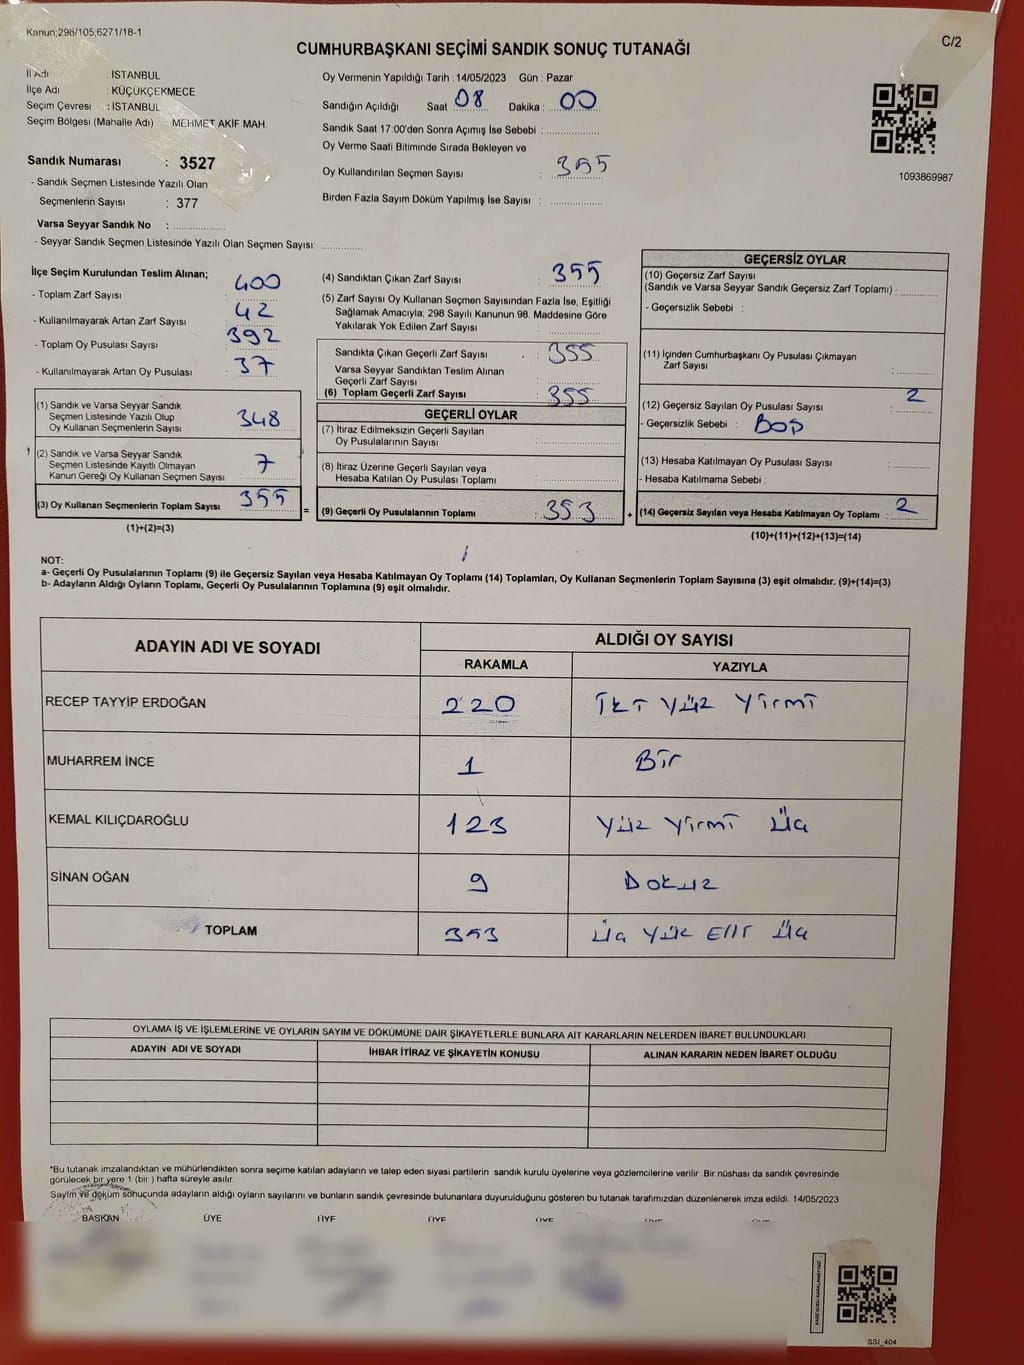 Kanun;298/105;6271/18-1
C/2
CUMHURBAŞKANI SEÇİMİ SANDIK SONUÇ TUTANAĞI
İl Adı : İSTANBUL
İlçe Adı : KÜÇÜKÇEKMECE
Seçim Çevresi : İSTANBUL
Seçim Bölgesi (Mahalle Adı) : MEHMET AKİF MAH.
Sandık Numarası : 3527
- Sandık Seçmen Listesinde Yazılı Olan
Seçmenlerin Sayısı : 377
Varsa Seyyar Sandık No :
- Seyyar Sandık Seçmen Listesinde Yazılı Olan Seçmen Sayısı:
Oy Vermenin Yapıldığı Tarih :14/05/2023 Gün : Pazar
Sandığın Açıldığı Saat 08 Dakika : 00
Sandık Saat 17:00'den Sonra Açımış İse Sebebi :
Oy Verme Saati Bitiminde Sırada Bekleyen ve
Oy Kullandırılan Seçmen Sayısı : 355
Birden Fazla Sayım Döküm Yapılmış İse Sayısı :
1093869987
İlçe Seçim Kurulundan Teslim Alınan;
- Toplam Zarf Sayısı 400
- Kullanılmayarak Artan Zarf Sayısı 42
- Toplam Oy Pusulası Sayısı 392
- Kullanılmayarak Artan Oy Pusulası 37
(1) Sandık ve Varsa Seyyar Sandık
Seçmen Listesinde Yazılı Olup
Oy Kullanan Seçmenlerin Sayısı 348
(2) Sandık ve Varsa Seyyar Sandık
Seçmen Listesinde Kayıtlı Olmayan
Kanun Gereği Oy Kullanan Seçmen Sayısı 7
(3) Oy Kullanan Seçmenlerin Toplam Sayısı 355
(1)+(2)=(3)
=
(4) Sandıktan Çıkan Zarf Sayısı : 355
(5) Zarf Sayısı Oy Kullanan Seçmen Sayısından Fazla İse, Eşitliği
Sağlamak Amacıyla; 298 Sayılı Kanunun 98. Maddesine Göre
Yakılarak Yok Edilen Zarf Sayısı :
Sandıkta Çıkan Geçerli Zarf Sayısı : 355
Varsa Seyyar Sandıktan Teslim Alınan
Geçerli Zarf Sayısı :
(6) Toplam Geçerli Zarf Sayısı : 355
GEÇERLİ OYLAR
(7) İtiraz Edilmeksizin Geçerli Sayılan
Oy Pusulalarının Sayısı :
(8) İtiraz Üzerine Geçerli Sayılan veya
Hesaba Katılan Oy Pusulası Toplamı :
(9) Geçerli Oy Pusulalarının Toplamı : 353
+
GEÇERSİZ OYLAR
(10) Geçersiz Zarf Sayısı
(Sandık ve Varsa Seyyar Sandık Geçersiz Zarf Toplamı) :
- Geçersizlik Sebebi :
(11) İçinden Cumhurbaşkanı Oy Pusulası Çıkmayan
Zarf Sayısı :
(12) Geçersiz Sayılan Oy Pusulası Sayısı : 2
- Geçersizlik Sebebi : BOŞ
(13) Hesaba Katılmayan Oy Pusulası Sayısı :
- Hesaba Katılmama Sebebi :
(14) Geçersiz Sayılan veya Hesaba Katılmayan Oy Toplamı : 2
(10)+(11)+(12)+(13)=(14)
NOT:
a- Geçerli Oy Pusulalarının Toplamı (9) ile Geçersiz Sayılan veya Hesaba Katılmayan Oy Toplamı (14) Toplamları, Oy Kullanan Seçmenlerin Toplam Sayısına (3) eşit olmalıdır. (9)+(14)=(3)
b- Adayların Aldığı Oyların Toplamı, Geçerli Oy Pusulalarının Toplamına (9) eşit olmalıdır.
ADAYIN ADI VE SOYADI ALDIĞI OY SAYISI
RAKAMLA YAZIYLA
RECEP TAYYİP ERDOĞAN 220 İki Yüz Yirmi
MUHARREM İNCE 1 Bir
KEMAL KILIÇDAROĞLU 123 Yüz Yirmi Üç
SİNAN OĞAN 9 Dokuz
TOPLAM 353 Üç Yüz Elli Üç
OYLAMA İŞ VE İŞLEMLERİNE VE OYLARIN SAYIM VE DÖKÜMÜNE DAİR ŞİKAYETLERLE BUNLARA AİT KARARLARIN NELERDEN İBARET BULUNDUKLARI
ADAYIN ADI VE SOYADI İHBAR İTİRAZ VE ŞİKAYETİN KONUSU ALINAN KARARIN NEDEN İBARET OLDUĞU
*Bu tutanak imzalandıktan ve mühürlendikten sonra seçime katılan adayların ve talep eden siyasi partilerin sandık kurulu üyelerine veya gözlemcilerine verilir .Bir nüshası da sandık çevresinde
görülecek bir yere 1 (bir ) hafta süreyle asılır.
Sayım ve döküm sonucunda adayların aldığı oyların sayılarını ve bunların sandık çevresinde bulunanlara duyurulduğunu gösteren bu tutanak tarafımızdan düzenlenerek imza edildi. 14/05/2023
BAŞKAN ÜYE ÜYE ÜYE ÜYE ÜYE ÜYE
KARE KODU KARALAMAYINIZ!
SSI_404